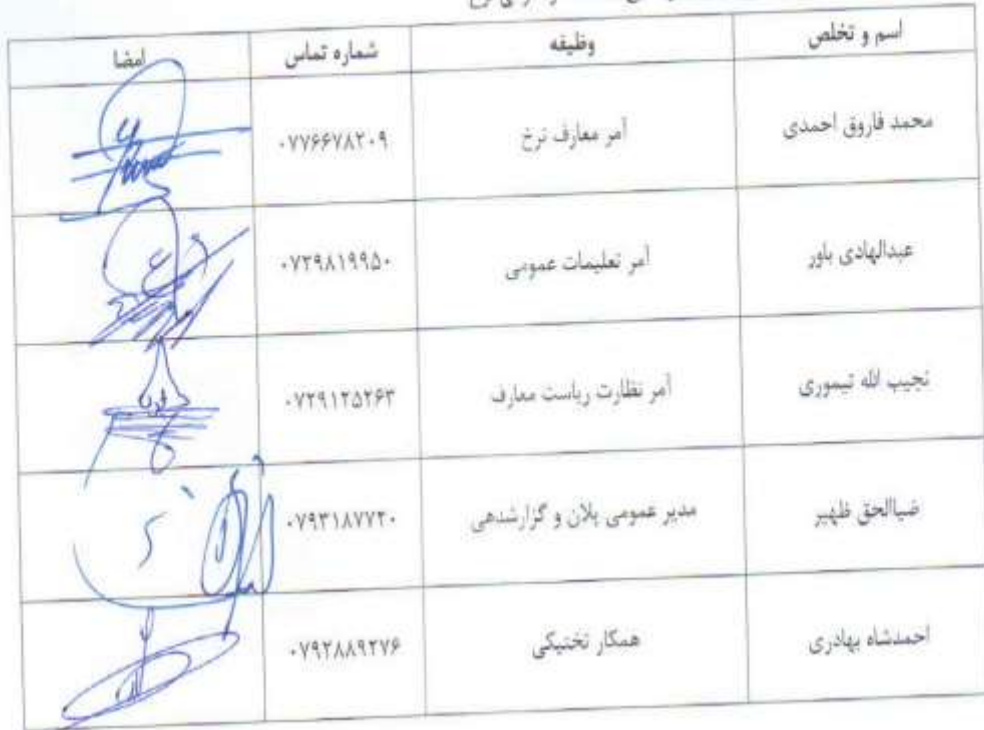 اسم و تخلص وظیفه شماره تماس امضا
محمد فاروق احمدی آمر معارف نرخ ۰۷۷۶۶۷۸۲۰۹
عبدالهادی باور آمر تعلیمات عمومی ۰۷۲۹۸۱۹۹۵۰
نجیب الله تیموری آمر نظارت ریاست معارف ۰۷۲۹۱۲۵۲۶۳
ضیاالحق ظهیر مدیر عمومی پلان و گزارشدهی ۰۷۹۳۱۸۷۷۲۰
احمدشاه بهادری همکار تخنیکی ۰۷۹۲۸۸۹۲۷۶